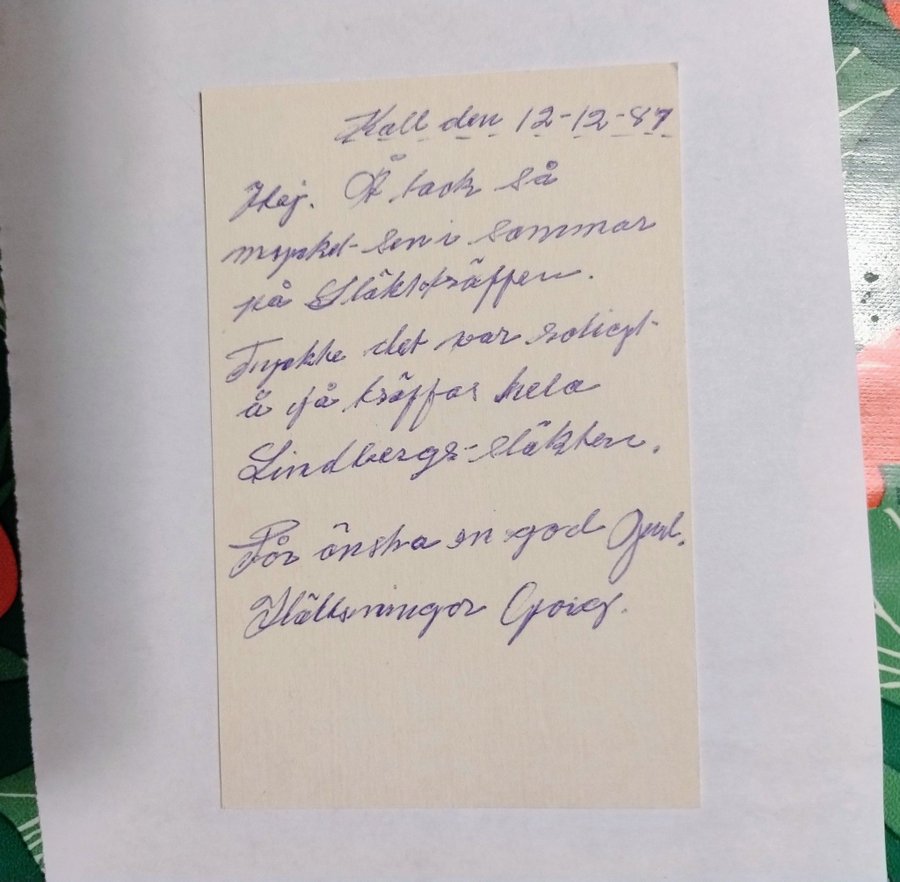 Kall den 12-12-87
Hej. Å tack så
mycket sen i sommar
på Släktträffen.
Tyckte det var roligt
å få träffas hela
Lindbergs-släkten.
Får önska en god Jul.
Hälsningar Georg.